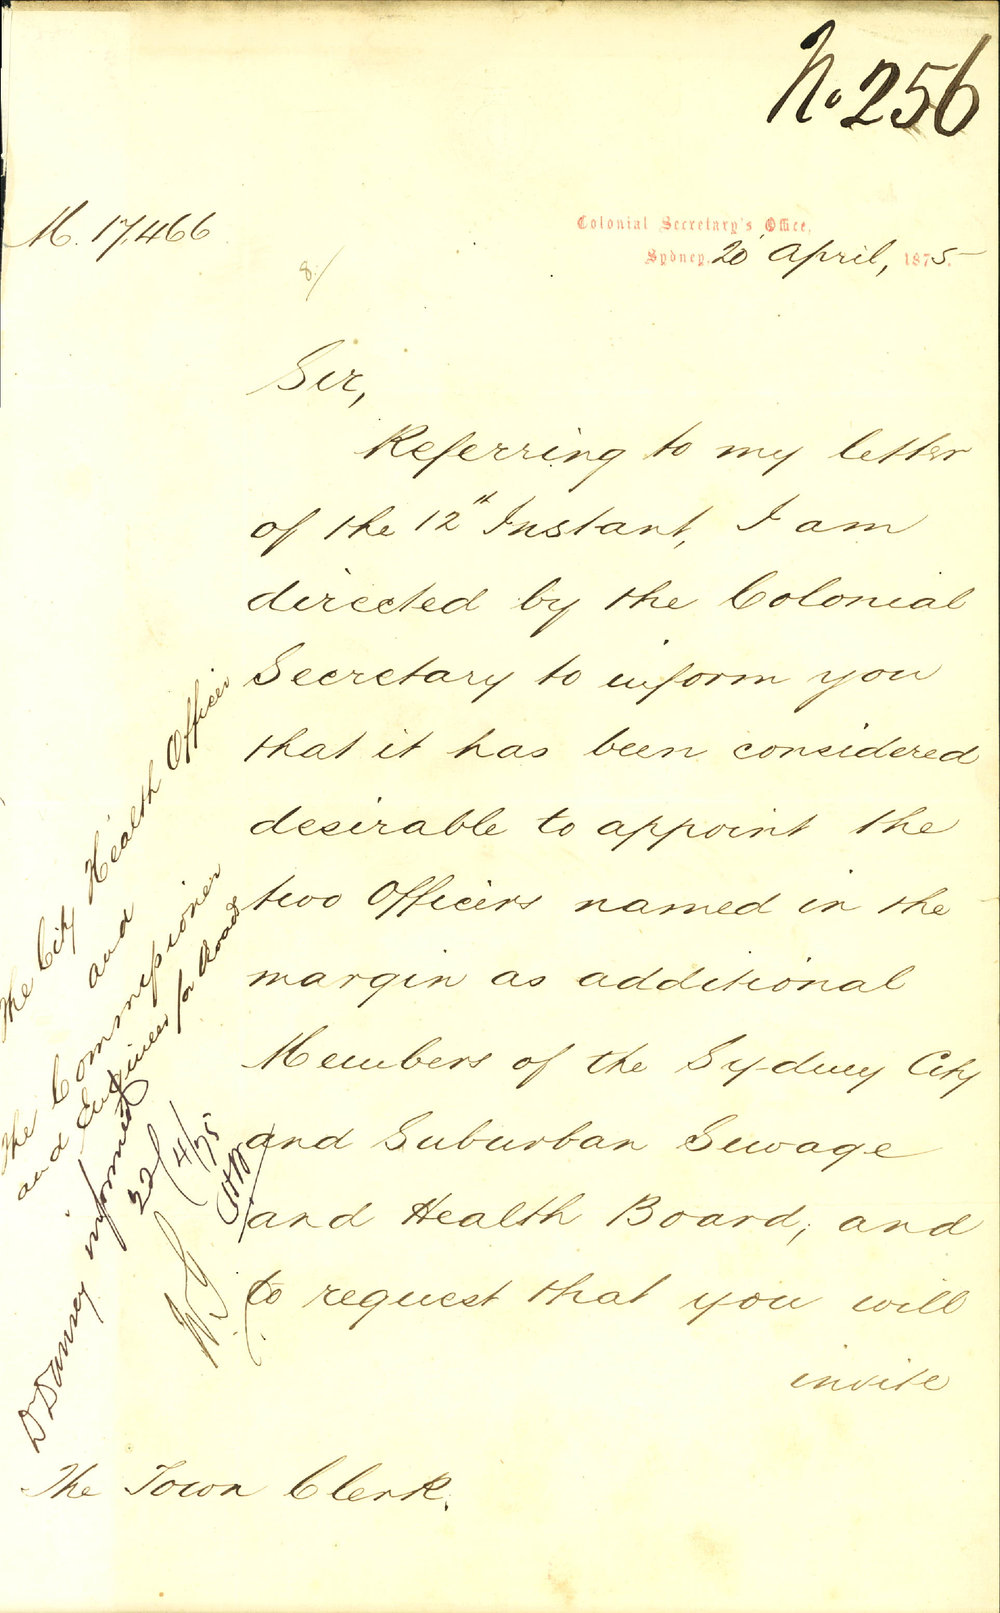 No. 256
M. 17,466
Colonial Secretary's Office,
Sydney, 20 April, 1875.
8/
Sir,
Referring to my letter
of the 12th Instant, I am
directed by the Colonial
Secretary to inform you
that it has been considered
desirable to appoint the
two Officers named in the
margin as additional
Members of the Sydney City
and Suburban Sewage
and Health Board, and
to request that you will
invite
The City Health Officer
and
The Commissioner
and Engineer for Roads
Dr Dansey informed
22/4/75
The Town Clerk.